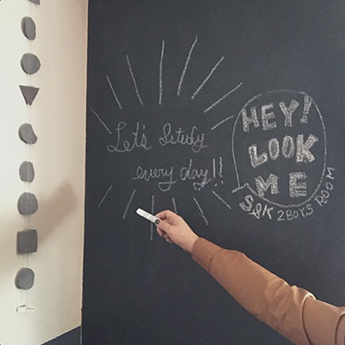 Let's Study
every day!!
HEY!
LOOK
ME
S&K 2BOYS ROOM